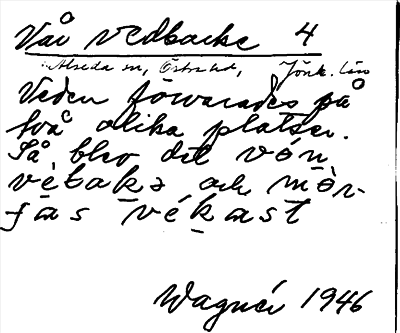 Vår vedbacke 4
Alseda sn, Östra hd, Jönk. län
Veden förvarades på
två olika platser.
Så blev det vǫ́n
vę́bakǝ och mǫ̀r-
fàs vékast
Wagnér 1946